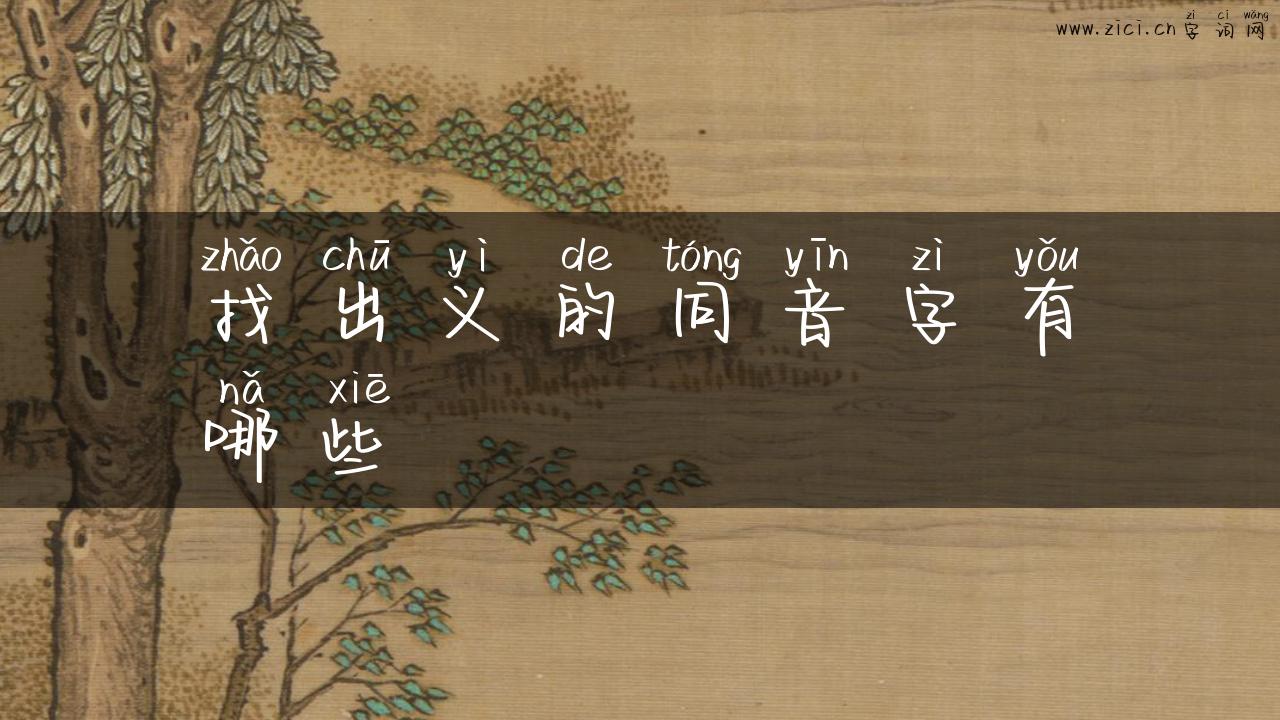 zì cí wǎng
www.zici.cn 字词网
zhǎo chū yì de tóng yīn zì yǒu
找出义的同音字有
nǎ xiē
哪些